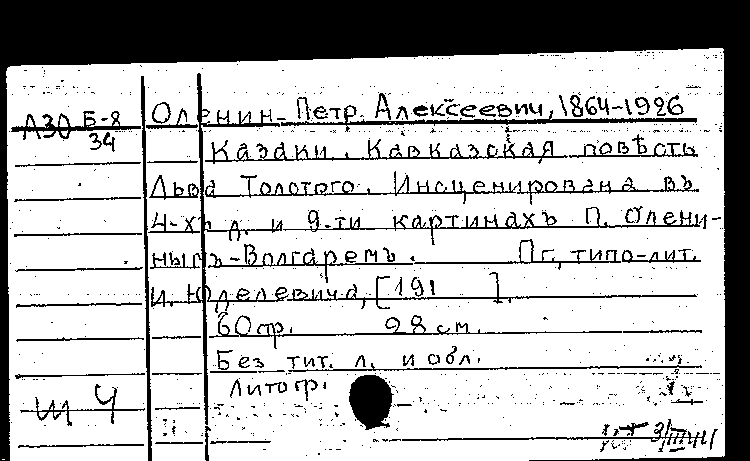 Л30 Б-8 Оленин- Петр. Алексеевич, 1864-1926
34
Казаки. Кавказская повѣсть
Льва Толстого. Инсценирована въ
4-хъ д. и 9-ти картинахъ П. Олени-
нымъ-Волгаремъ. Пг., типо-лит.
И. Юделевича, [191 ].
60 стр. 28 см.
Без тит. л. и обл.
Литогр.
ш 4